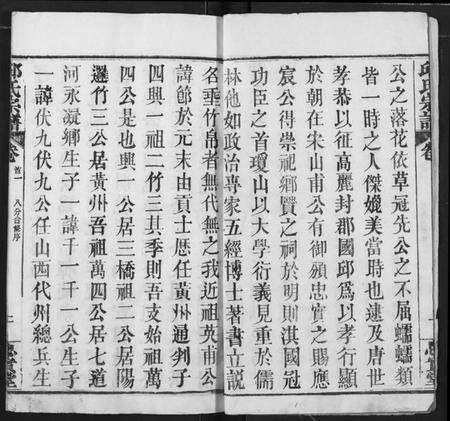 邱氏宗譜
卷
公之落花依草冠先公之不屈蠕蠕類
皆一時之人傑媲美當時也逮及唐世
孝恭以征高麗封郡國邱爲以孝行顯
於朝在宋山甫公有御頒忠實之賜應
宸公得崇祀鄉賢之祠於明則淇國冠
功臣之首瓊山以大學衍義見重於儒
林他如政治專家五經博士著書立說
名垂竹帛者無代無之我近祖英甫公
諱節於元末由貢士歴任黃州通判子
四興一祖二竹三其季則吾支始祖萬
四公是也興一公居三橋祖二公居陽
邏竹三公居黃州吾祖萬四公居七道
河永凝鄉生子一諱千一千一公生子
一諱伏九伏九公任山西代州總兵生
邱氏宗譜
卷首一